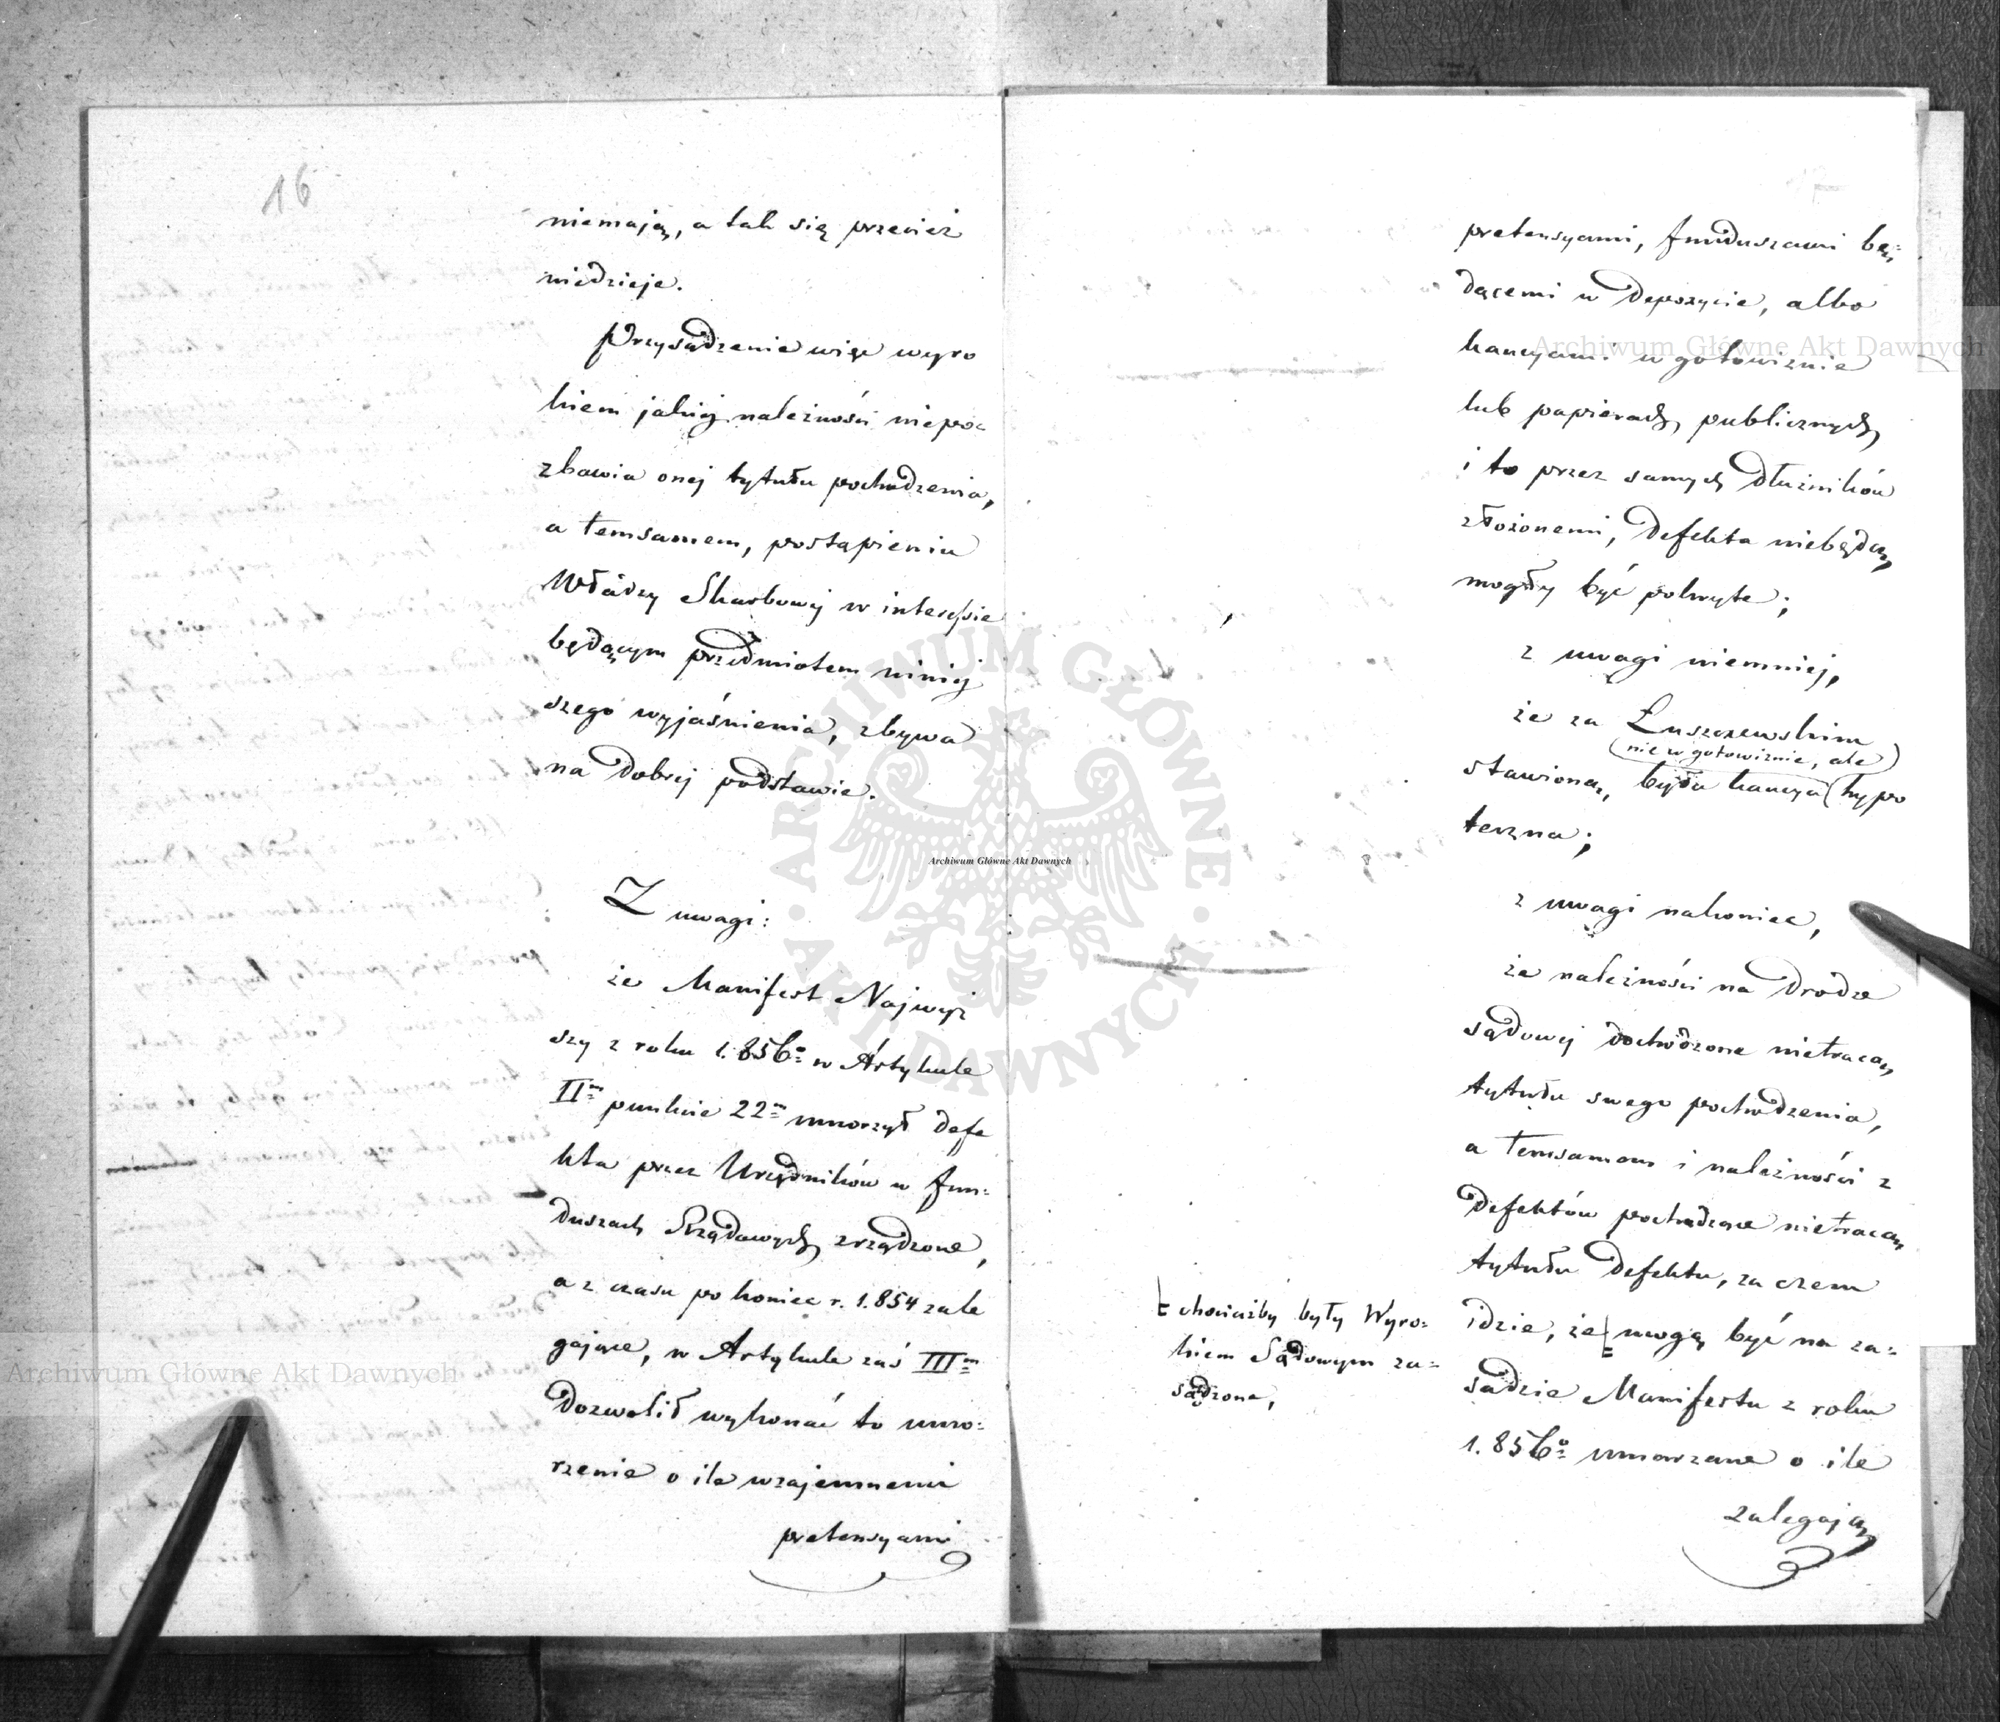 16
niemają, a tak się przecież
niedzieje.
Przysądzenie więc wyro
kiem jakiej należności niepo-
zbawia onej tytułu pochodzenia,
a temsamem, postąpieniu
Władzy Skarbowej w interesie
będącym przedmiotem niniej
szego wyjaśnienia, zbywa
na dobrej podstawie.
Z uwagi:
że Manifest Najwyż
szy z roku 1.856º w Artykule
IIm punkcie 22m umorzył defe
kta przez Urzędników w fun-
duszach Rządowych zrządzone,
a z czasu po koniec r. 1.854 zale
gające, w Artykule zaś IIIm
dozwolił wykonać to umo-
rzenie o ile wzajemnemi
pretensyami
pretensyami, funduszami bę-
dącemi w Depozycie, albo
kaucyami w gotowiznie
lub papierach publicznych,
i to przez samych dłużników
złożonemi, defekta niebędą
mogły być pokryte;
z uwagi niemniej,
że za Łuszczewskim
(nie w gotowiznie, ale)
stawioną, była kaucya hypo
teczna;
z uwagi nakoniec,
że należności na drodze
sądowej dochodzone nietracą
tytułu swego pochodzenia,
a temsamem i należności z
defektów pochodzące nietracą
tytułu defektu, za czem
idzie, że mogą być na za-
sadzie Manifestu z roku
1.856º umarzane o ile
zalegają
chociażby były Wyro-
kiem Sądowym za-
sądzone,
Archiwum Główne Akt Dawnych
Archiwum Główne Akt Dawnych
Archiwum Główne Akt Dawnych
ARCHIWUM GŁÓWNE · AKT DAWNYCH ·